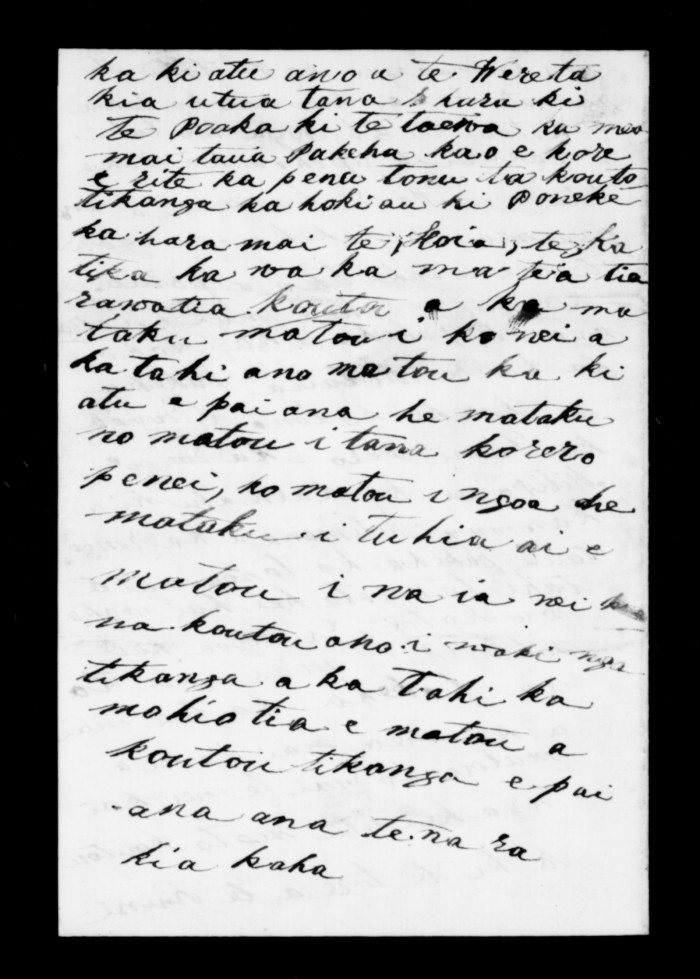 ka ki atu ano a te Wereta
kia utua tana huru ki
te Poaka ki te taewa ka mea
mai taua Pakeha kao e kore
e rite ka penu tonu ta kouto
tikanga ka hoki au ki Poneke
ka hara mai te, koia, te
tika ka wa ka ma te a tia
rawatia koutou a ka ma
taku matou i ko nei a
ka tahi ano matou ka ki
atu e pai ana he mataku
no matou i tana korero
penei, ko matou i ngoa he
mataku i tuhia ai e
matou i na ia nei
na koutou ano i waki nga
tikanga a ka Tahi ka
mohio tia e matou a
koutou tikanga e pai
ana ana te na ra
kia kaha